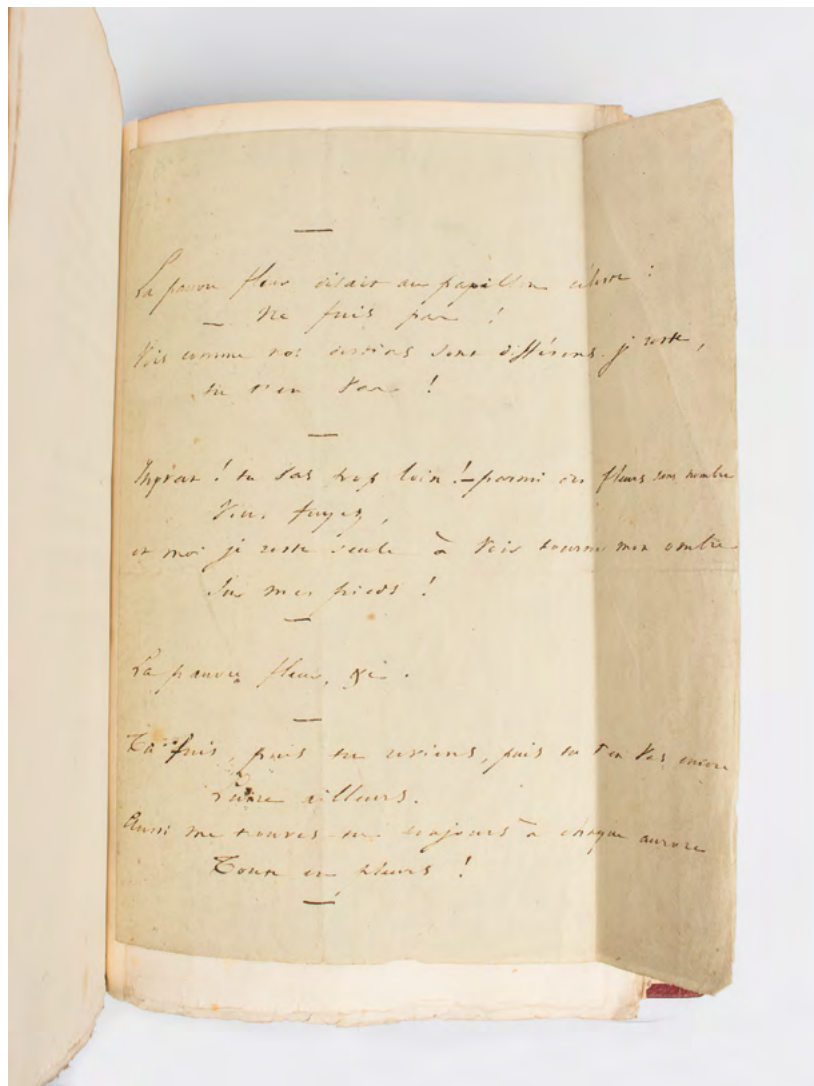 La pauvre fleur disait au papillon céleste :
— Ne fuis pas !
Vois comme nos destins sont différens. je reste,
tu t'en vas !
Ingrat ! tu vas trop loin ! — parmi des fleurs sans nombre
Vous fuyez,
et moi je reste seule à voir tourner mon ombre
Sur mes pieds !
La pauvre fleur, &c.
Tu fuis, puis tu reviens, puis tu t'en vas encore
Luire ailleurs.
Aussi me trouves-tu toujours à chaque aurore
Toute en pleurs !